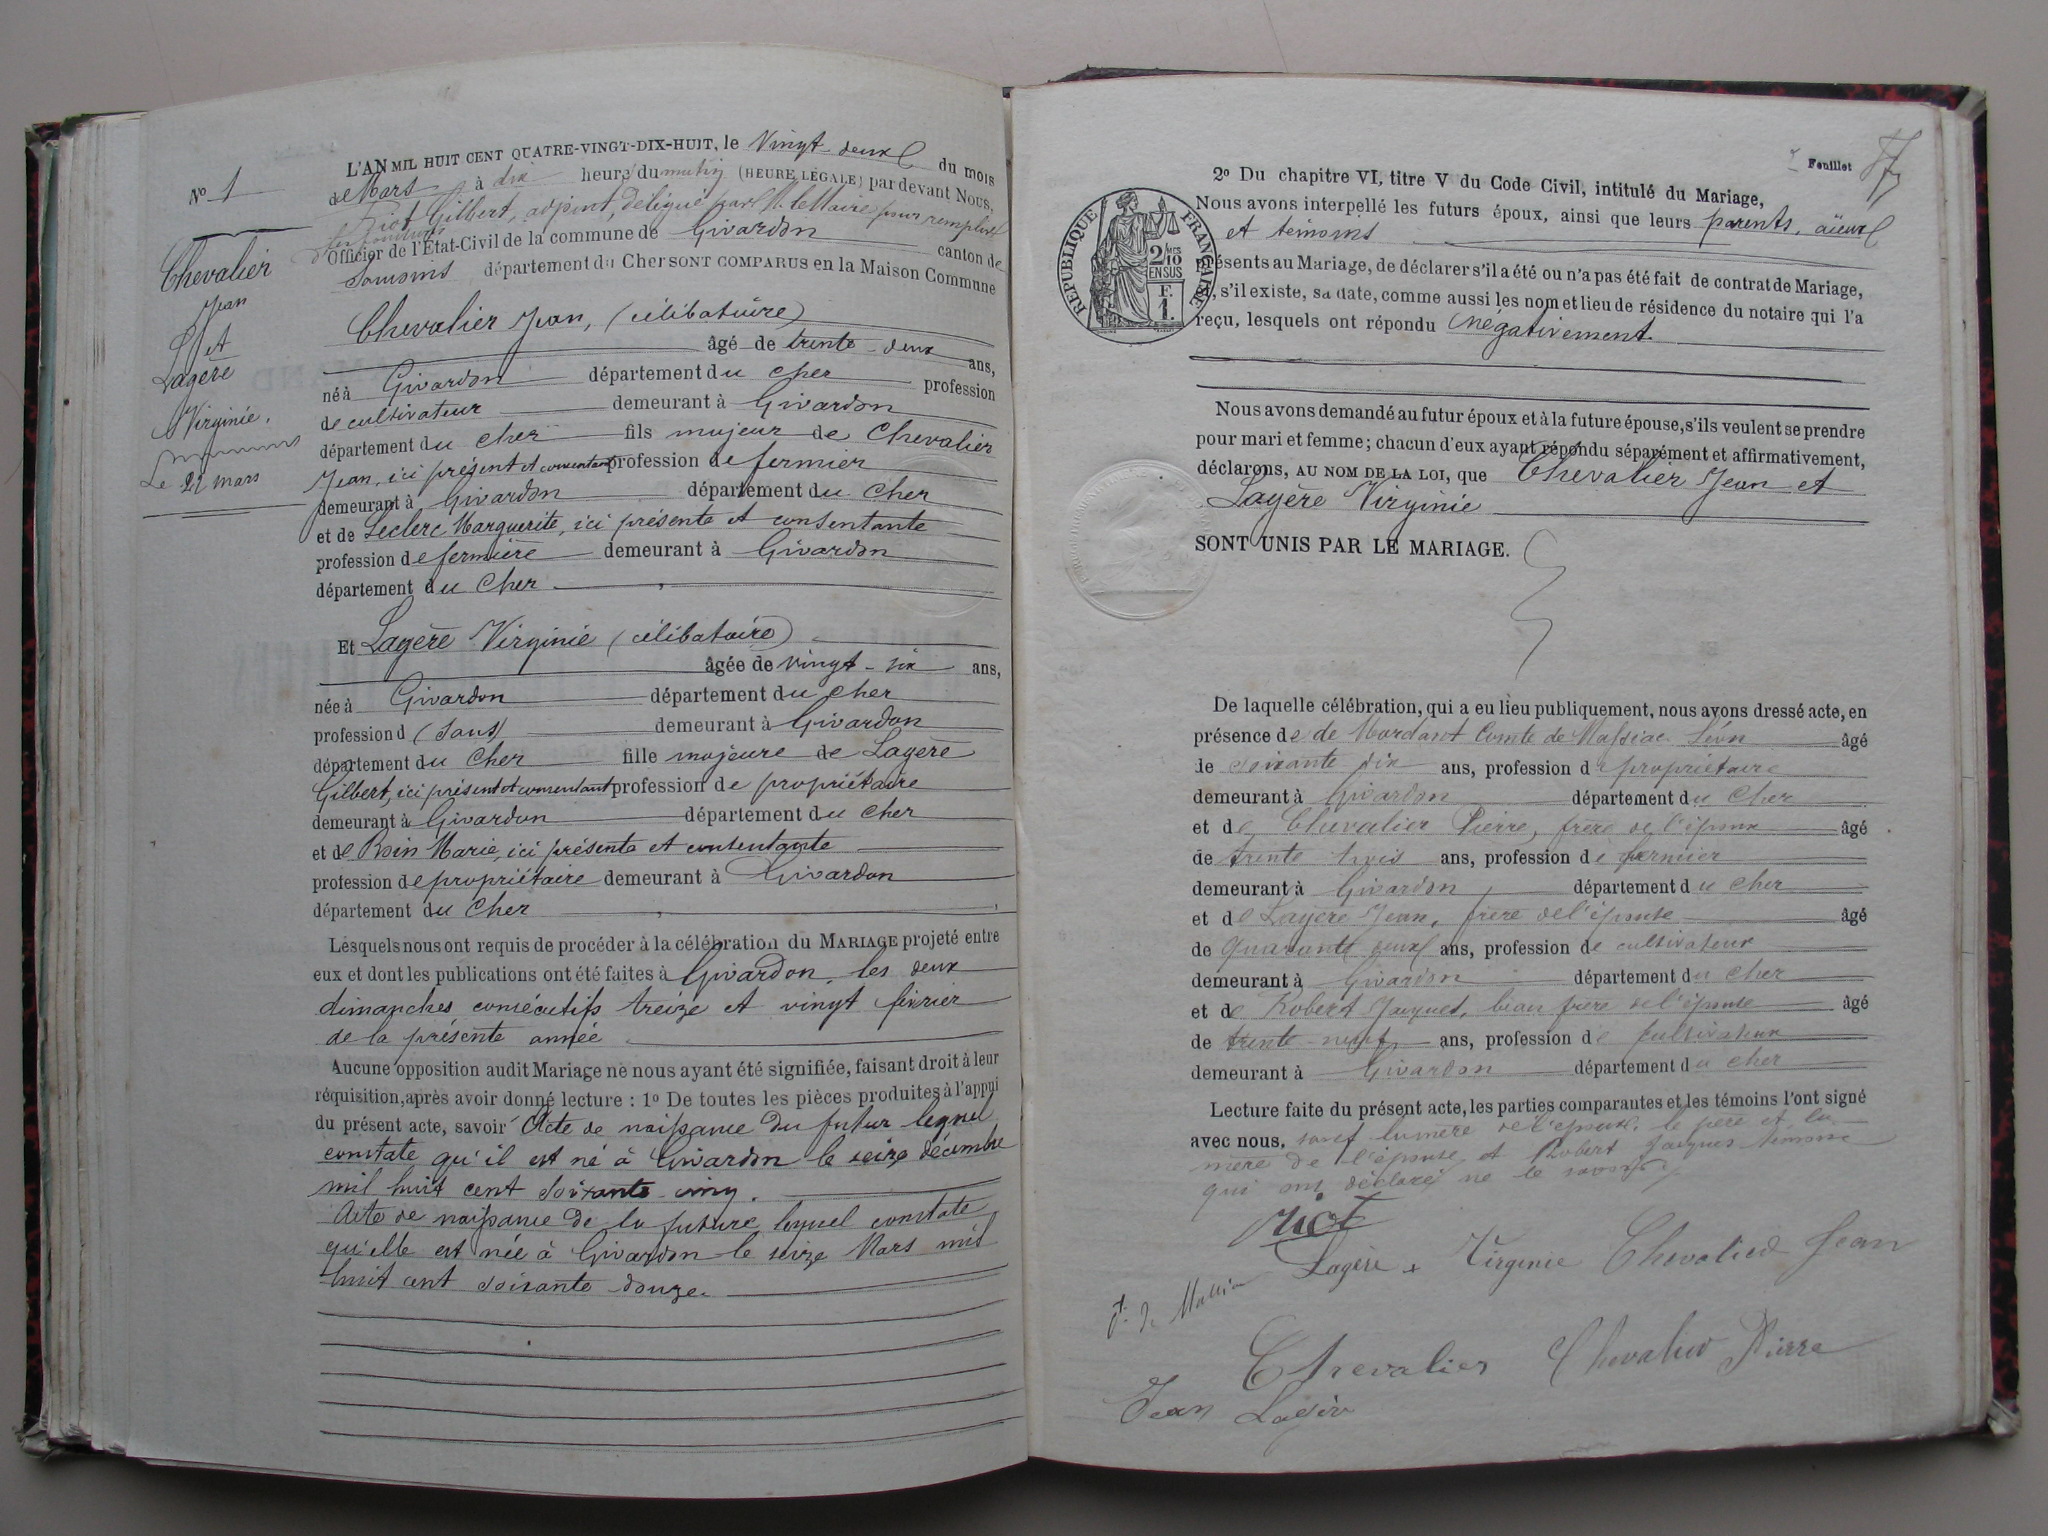 N° 1
Chevalier
Jean
et
Lagère
Virginie.
Le 22 mars
L'AN MIL HUIT CENT QUATRE-VINGT-DIX-HUIT, le Vingt-deux du mois
de Mars à dix heures du matin (HEURE LÉGALE) par devant Nous,
Riot Gilbert, adjoint, délégué par M. le Maire pour remplir
les fonctions
d'Officier de l'État-Civil de la commune de Givardon canton de
Sancoins département du Cher SONT COMPARUS en la Maison Commune
Chevalier Jean, (célibataire)
âgé de trente-deux ans,
né à Givardon département du Cher profession
de cultivateur demeurant à Givardon
département du Cher fils majeur de Chevalier
Jean, ici présent et consentant profession de fermier
demeurant à Givardon département du Cher
et de Leclerc Marguerite, ici présente et consentante
profession de fermière demeurant à Givardon
département du Cher
Et Lagère Virginie (célibataire)
âgée de vingt-six ans,
née à Givardon département du Cher
profession d (sans) demeurant à Givardon
département du Cher fille majeure de Lagère
Gilbert, ici présent et consentant profession de propriétaire
demeurant à Givardon département du Cher
et de Marie, ici présente et consentante
profession de propriétaire demeurant à Givardon
département du Cher
Lesquels nous ont requis de procéder à la célébration du MARIAGE projeté entre
eux et dont les publications ont été faites à Givardon, les deux
dimanches consécutifs treize et vingt février
de la présente année
Aucune opposition audit Mariage ne nous ayant été signifiée, faisant droit à leur
réquisition, après avoir donné lecture : 1° De toutes les pièces produites à l'appui
du présent acte, savoir Acte de naissance du futur lequel
constate qu'il est né à Givardon le seize décembre
mil huit cent soixante-cinq.
Acte de naissance de la future lequel constate
qu'elle est née à Givardon le seize Mars mil
huit cent soixante-douze.
Feuillet
2° Du chapitre VI, titre V du Code Civil, intitulé du Mariage,
Nous avons interpellé les futurs époux, ainsi que leurs parents, aïeux
et témoins
présents au Mariage, de déclarer s'il a été ou n'a pas été fait de contrat de Mariage,
et, s'il existe, sa date, comme aussi les nom et lieu de résidence du notaire qui l'a
reçu, lesquels ont répondu négativement.
RÉPUBLIQUE FRANÇAISE
2/10
EN SUS
F.
1.
Nous avons demandé au futur époux et à la future épouse, s'ils veulent se prendre
pour mari et femme ; chacun d'eux ayant répondu séparément et affirmativement,
déclarons, AU NOM DE LA LOI, que Chevalier Jean et
Lagère Virginie
SONT UNIS PAR LE MARIAGE.
De laquelle célébration, qui a eu lieu publiquement, nous avons dressé acte, en
présence de de Mordant Comte de Massiac Léon âgé
de soixante dix ans, profession de propriétaire
demeurant à Givardon département du Cher
et de Chevalier Pierre, frère de l'époux âgé
de trente trois ans, profession de fermier
demeurant à Givardon département du Cher
et de Lagère Jean, frère de l'épouse âgé
de Quarante deux ans, profession de cultivateur
demeurant à Givardon département du Cher
et de Robert Jacques, beau frère de l'épouse âgé
de trente-neuf ans, profession de cultivateur
demeurant à Givardon département du Cher
Lecture faite du présent acte, les parties comparautes et les témoins l'ont signé
avec nous, sauf la mère de l'époux, le père et la
mère de l'épouse et Robert Jacques témoins
qui ont déclaré ne le savoir
Riot
Lagère Virginie Chevalier Jean
de Massiac
Chevalier Chevalier Pierre
Jean Lagère